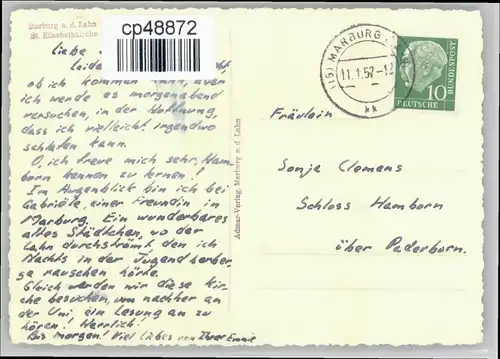 Marburg a. d. Lahn
St. Elisabethkirche
cp48872
liebe
leider
ob ich kommen kann, aber
ich werde es morgenabend
versuchen, in der Hoffnung,
dass ich vielleicht irgendwo
schlafen kann.
O, ich freue mich sehr, Ham-
born kennen zu lernen!
Im Augenblick bin ich bei
Gabriele, einer Freundin in
Marburg. Ein wunderbares
altes Städtchen, wo der
Lahn durchströmt, den ich
Nachts in der Jugendherber-
ge rauschen hörte.
Gleich werden wir diese Kir-
che besuchen, um nachher an
der Uni ein Lesung an zu
hören! Herrlich!
Bis morgen! Viel Liebes von Ihrer Emmie
Admar-Verlag, Marburg a. d. Lahn
(16) MARBURG
11.1.57
10
DEUTSCHE
BUNDESPOST
Fräulein
Sonja Clemens
Schloss Hamborn
über Paderborn.